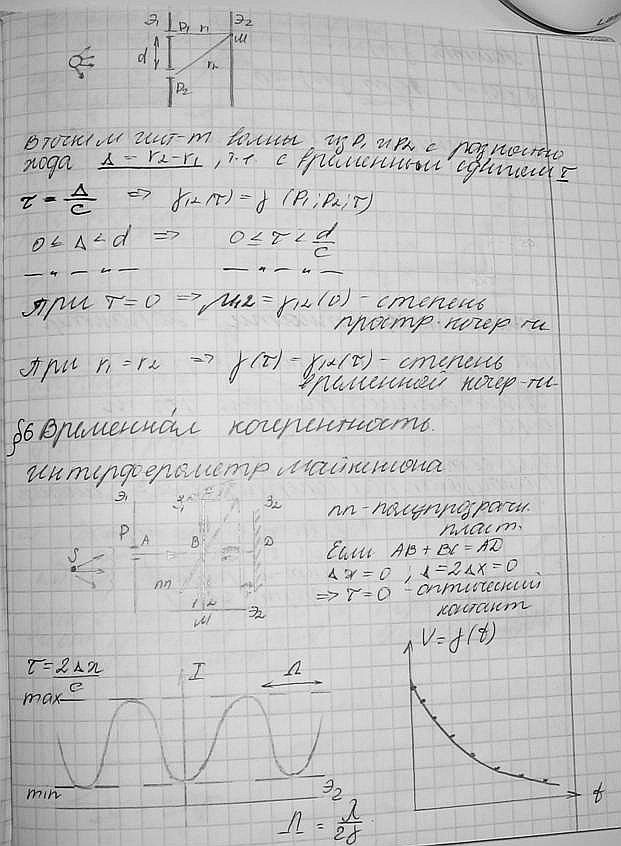 Э₁ P₁ r₁ Э₂
M
d r₂
P₂
В точке М инт-т волны из P₁ и P₂ с разностью
хода Δ = r₂ - r₁, т.е с временным сдвигом τ
τ = Δ/c ⇒ γ₁₂(τ) = γ (P₁; P₂; τ)
0 ≤ Δ < d ⇒ 0 ≤ τ < d/c
— " — " — — " — " —
При τ = 0 ⇒ μ₁₂ = γ₁₂(0) - степень
простр. когер-ти
При r₁ = r₂ ⇒ γ(τ) = γ₁₂(τ) - степень
временной когер-ти
§6 Временная когерентность.
Интерферометр Майкельсона
Э₁ Э₂
P A B D
S
пп
1 2
M Э₂
пп - полупрозрачн.
пласт.
Если AB + BC = AD
Δx = 0 ; Δ = 2Δx = 0
⇒ τ = 0 - оптический
контакт
τ = 2Δx/c
I Λ
max
min Э₂
Λ = λ/2γ
V = γ(t)
t